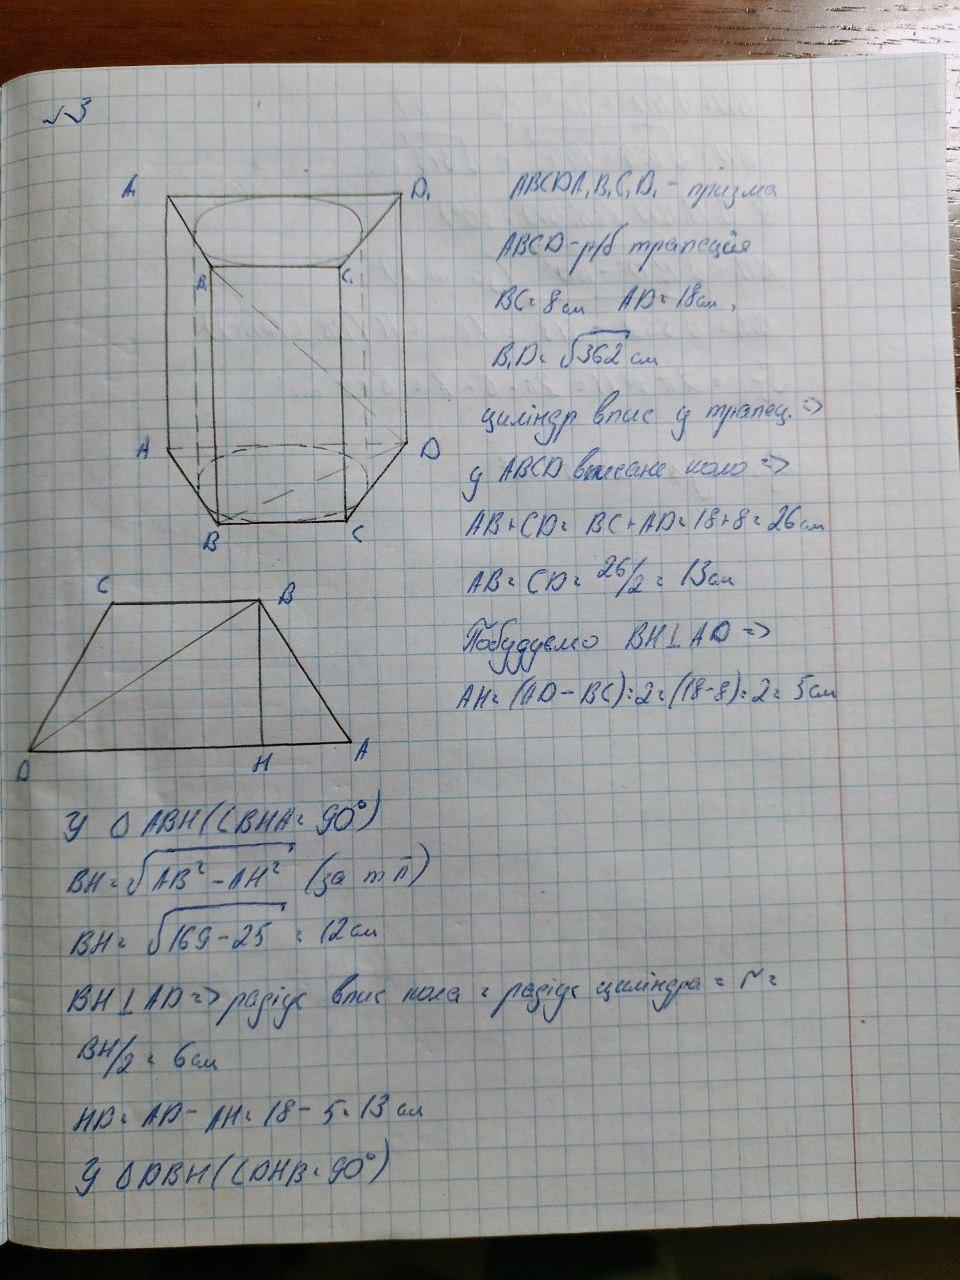 √3
A₁
D₁
B₁
C₁
A
D
B
C
ABCDA₁B₁C₁D₁ - призма
ABCD - р/б трапеція
BC = 8 см AD = 18 см,
B₁D = √362 см
циліндр впис у трапец. =>
у ABCD вписане коло =>
AB + CD = BC + AD = 18 + 8 = 26 см
AB = CD = 26/2 = 13 см
Побудуємо BH ⊥ AD =>
AH = (AD - BC) : 2 = (18 - 8) : 2 = 5 см
C
B
D
H
A
У △ ABH (∠BHA = 90°)
BH = √AB² - AH² (за т П)
BH = √169 - 25 = 12 см
BH ⊥ AD => радіус впис кола = радіус циліндра = r =
BH/2 = 6 см
HD = AD - AH = 18 - 5 = 13 см
У △ DBH (∠DHB = 90°)